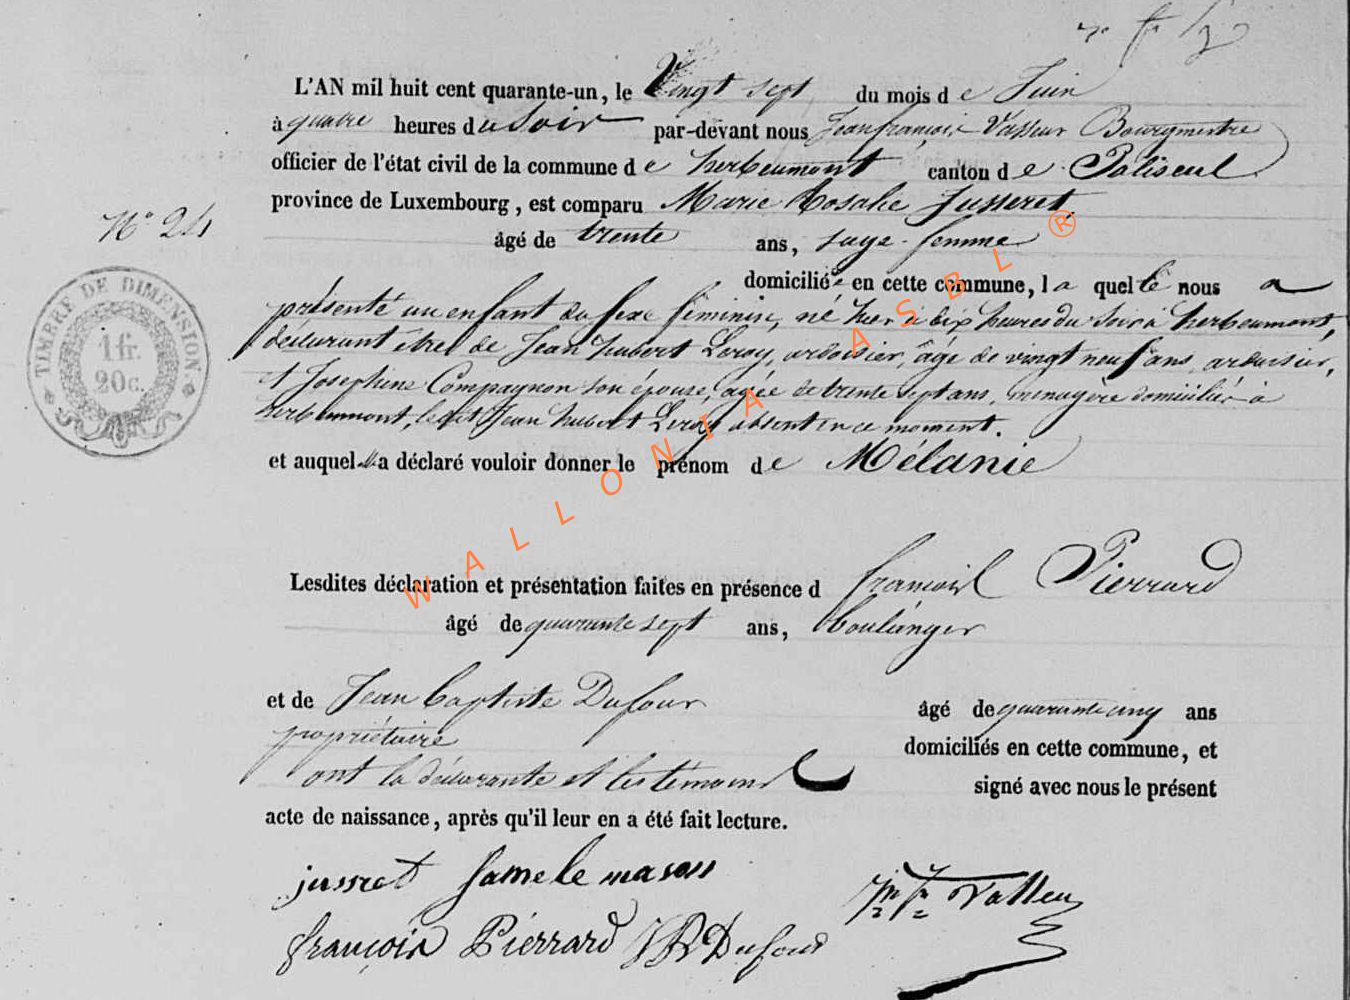 L'AN mil huit cent quarante-un, le Vingt sept du mois de Juin
à quatre heures du Soir par-devant nous Jean françois Vasseur Bourgmestre
officier de l'état civil de la commune de herbeumont canton de Paliseul
province de Luxembourg, est comparu Marie Rosalie Jusseret
N° 24
âgé de trente ans, sage-femme
domiciliée en cette commune, la quelle nous a
présenté un enfant du sexe féminin, né hier à dix heures du soir à herbeumont,
déclarant être de Jean hubert Leroy, ardoisier, âgé de vingt neuf ans, ardoisier,
et Josephine Compagnon son épouse, agée de trente sept ans, ménagère domiciliés à
herbeumont, ledit Jean hubert Leroy absent en ce moment.
et auquel elle a déclaré vouloir donner le prénom de Mélanie
TIMBRE DE DIMENSION
1 fr.
20 c.
Lesdites déclaration et présentation faites en présence d françois Pierrard
âgé de quarante sept ans, boulanger
et de Jean baptiste Dufour âgé de quarante cinq ans
propriétaire domiciliés en cette commune, et
ont la déclarante et les témoins signé avec nous le présent
acte de naissance, après qu'il leur en a été fait lecture.
jusseret fame le mason
françois Pierrard JB Dufour
WALLONIA ASBL ®